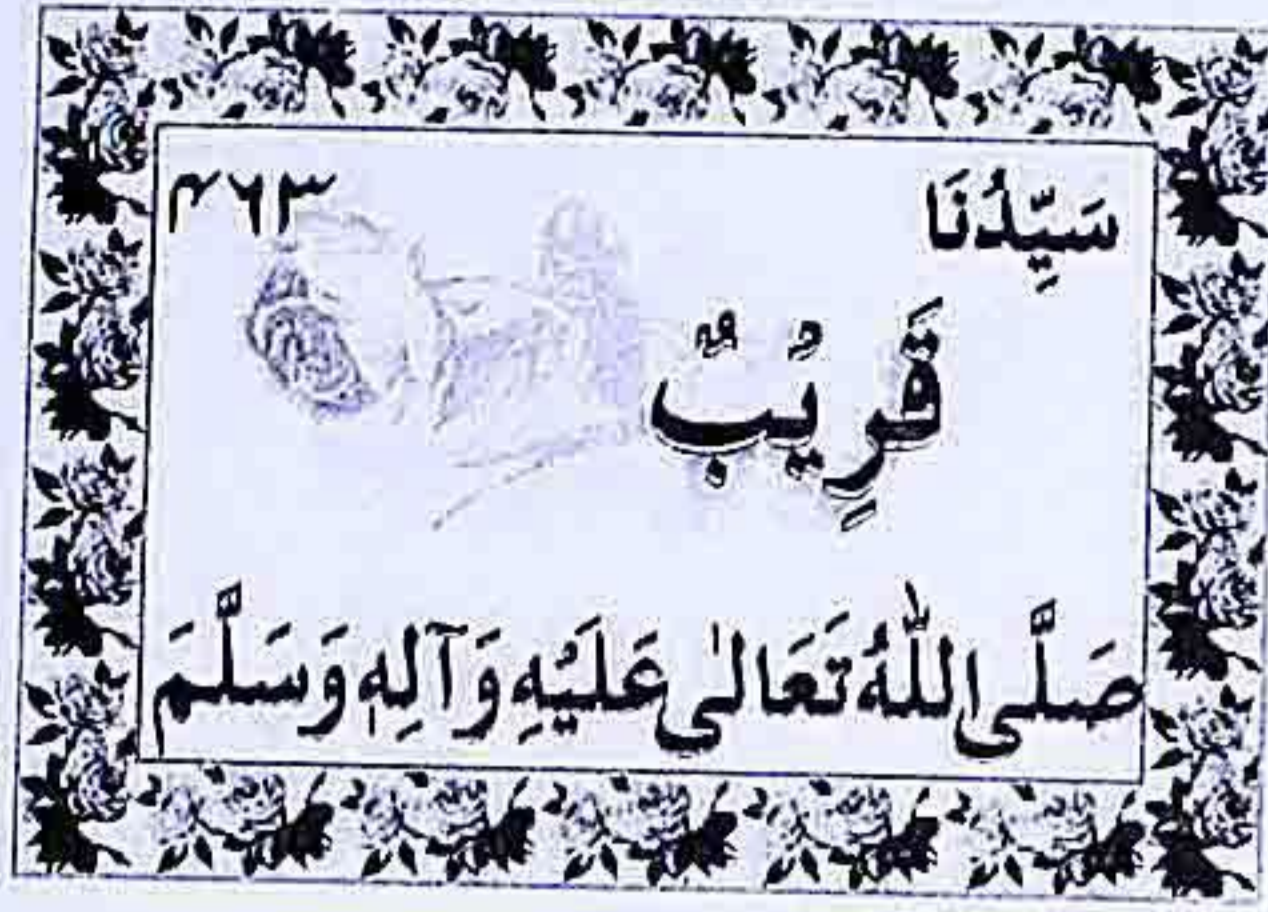 سَيِّدُنَا ۴۶۳
قَرِيْبٌ
صَلَّى اللّٰهُ تَعَالٰى عَلَيْهِ وَآلِهٖ وَسَلَّمَ